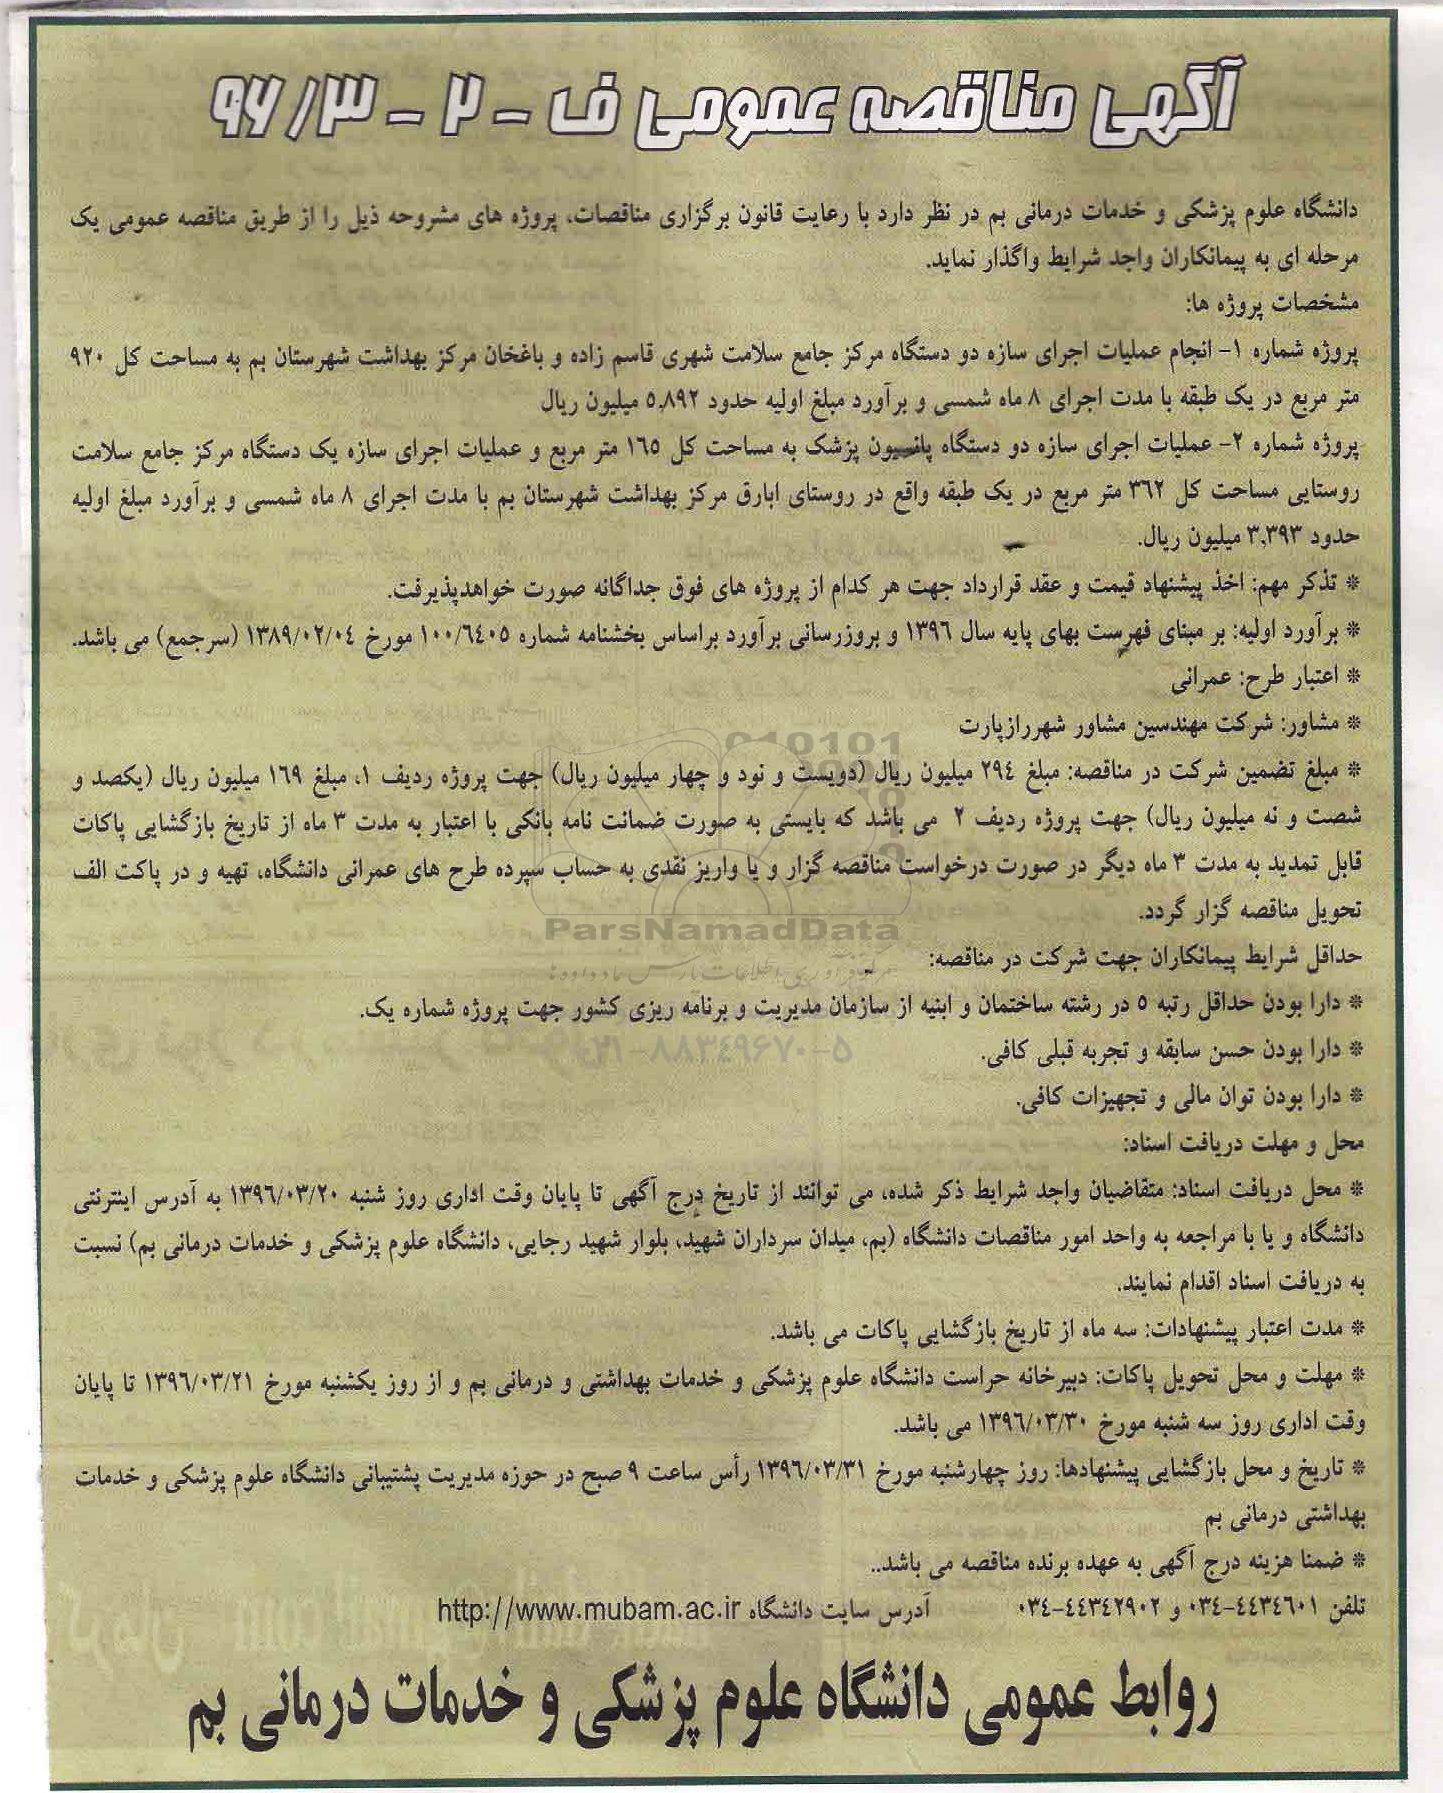 آگهی مناقصه عمومی ف - ۲ - ۹۶/۳
دانشگاه علوم پزشکی و خدمات درمانی بم در نظر دارد با رعایت قانون برگزاری مناقصات، پروژه های مشروحه ذیل را از طریق مناقصه عمومی یک
مرحله ای به پیمانکاران واجد شرایط واگذار نماید.
مشخصات پروژه ها:
پروژه شماره ۱- انجام عملیات اجرای سازه دو دستگاه مرکز جامع سلامت شهری قاسم زاده و باغخان مرکز بهداشت شهرستان بم به مساحت کل ۹۲۰
متر مربع در یک طبقه با مدت اجرای ۸ ماه شمسی و برآورد مبلغ اولیه حدود ۵,۸۹۲ میلیون ریال
پروژه شماره ۲- عملیات اجرای سازه دو دستگاه پانسیون پزشک به مساحت کل ۱۶۵ متر مربع و عملیات اجرای سازه یک دستگاه مرکز جامع سلامت
روستایی مساحت کل ۳۶۲ متر مربع در یک طبقه واقع در روستای ابارق مرکز بهداشت شهرستان بم با مدت اجرای ۸ ماه شمسی و برآورد مبلغ اولیه
حدود ۳,۳۹۳ میلیون ریال.
* تذکر مهم: اخذ پیشنهاد قیمت و عقد قرارداد جهت هر کدام از پروژه های فوق جداگانه صورت خواهدپذیرفت.
* برآورد اولیه: بر مبنای فهرست بهای پایه سال ۱۳۹۶ و بروزرسانی برآورد براساس بخشنامه شماره ۱۰۰/۶۴۰۵ مورخ ۱۳۸۹/۰۲/۰۴ (سرجمع) می باشد.
* اعتبار طرح: عمرانی
* مشاور: شرکت مهندسین مشاور شهررازپارت
* مبلغ تضمین شرکت در مناقصه: مبلغ ۲۹۴ میلیون ریال (دویست و نود و چهار میلیون ریال) جهت پروژه ردیف ۱، مبلغ ۱۶۹ میلیون ریال (یکصد و
شصت و نه میلیون ریال) جهت پروژه ردیف ۲ می باشد که بایستی به صورت ضمانت نامه بانکی با اعتبار به مدت ۳ ماه از تاریخ بازگشایی پاکات
قابل تمدید به مدت ۳ ماه دیگر در صورت درخواست مناقصه گزار و یا واریز نقدی به حساب سپرده طرح های عمرانی دانشگاه، تهیه و در پاکت الف
تحویل مناقصه گزار گردد.
ParsNamadData
حداقل شرایط پیمانکاران جهت شرکت در مناقصه:
* دارا بودن حداقل رتبه ۵ در رشته ساختمان و ابنیه از سازمان مدیریت و برنامه ریزی کشور جهت پروژه شماره یک.
۰۲۱-۸۸۳۴۹۶۷۰-۵
* دارا بودن حسن سابقه و تجربه قبلی کافی.
* دارا بودن توان مالی و تجهیزات کافی.
محل و مهلت دریافت اسناد:
* محل دریافت اسناد: متقاضیان واجد شرایط ذکر شده، می توانند از تاریخ درج آگهی تا پایان وقت اداری روز شنبه ۱۳۹۶/۰۳/۲۰ به آدرس اینترنتی
دانشگاه و یا با مراجعه به واحد امور مناقصات دانشگاه (بم، میدان سرداران شهید، بلوار شهید رجایی، دانشگاه علوم پزشکی و خدمات درمانی بم) نسبت
به دریافت اسناد اقدام نمایند.
* مدت اعتبار پیشنهادات: سه ماه از تاریخ بازگشایی پاکات می باشد.
* مهلت و محل تحویل پاکات: دبیرخانه حراست دانشگاه علوم پزشکی و خدمات بهداشتی و درمانی بم و از روز یکشنبه مورخ ۱۳۹۶/۰۳/۲۱ تا پایان
وقت اداری روز سه شنبه مورخ ۱۳۹۶/۰۳/۳۰ می باشد.
* تاریخ و محل بازگشایی پیشنهادها: روز چهارشنبه مورخ ۱۳۹۶/۰۳/۳۱ رأس ساعت ۹ صبح در حوزه مدیریت پشتیبانی دانشگاه علوم پزشکی و خدمات
بهداشتی درمانی بم
* ضمنا هزینه درج آگهی به عهده برنده مناقصه می باشد..
تلفن ۴۴۳۴۶۰۱-۰۳۴ و ۴۴۳۴۲۹۰۲-۰۳۴ آدرس سایت دانشگاه http://www.mubam.ac.ir
روابط عمومی دانشگاه علوم پزشکی و خدمات درمانی بم